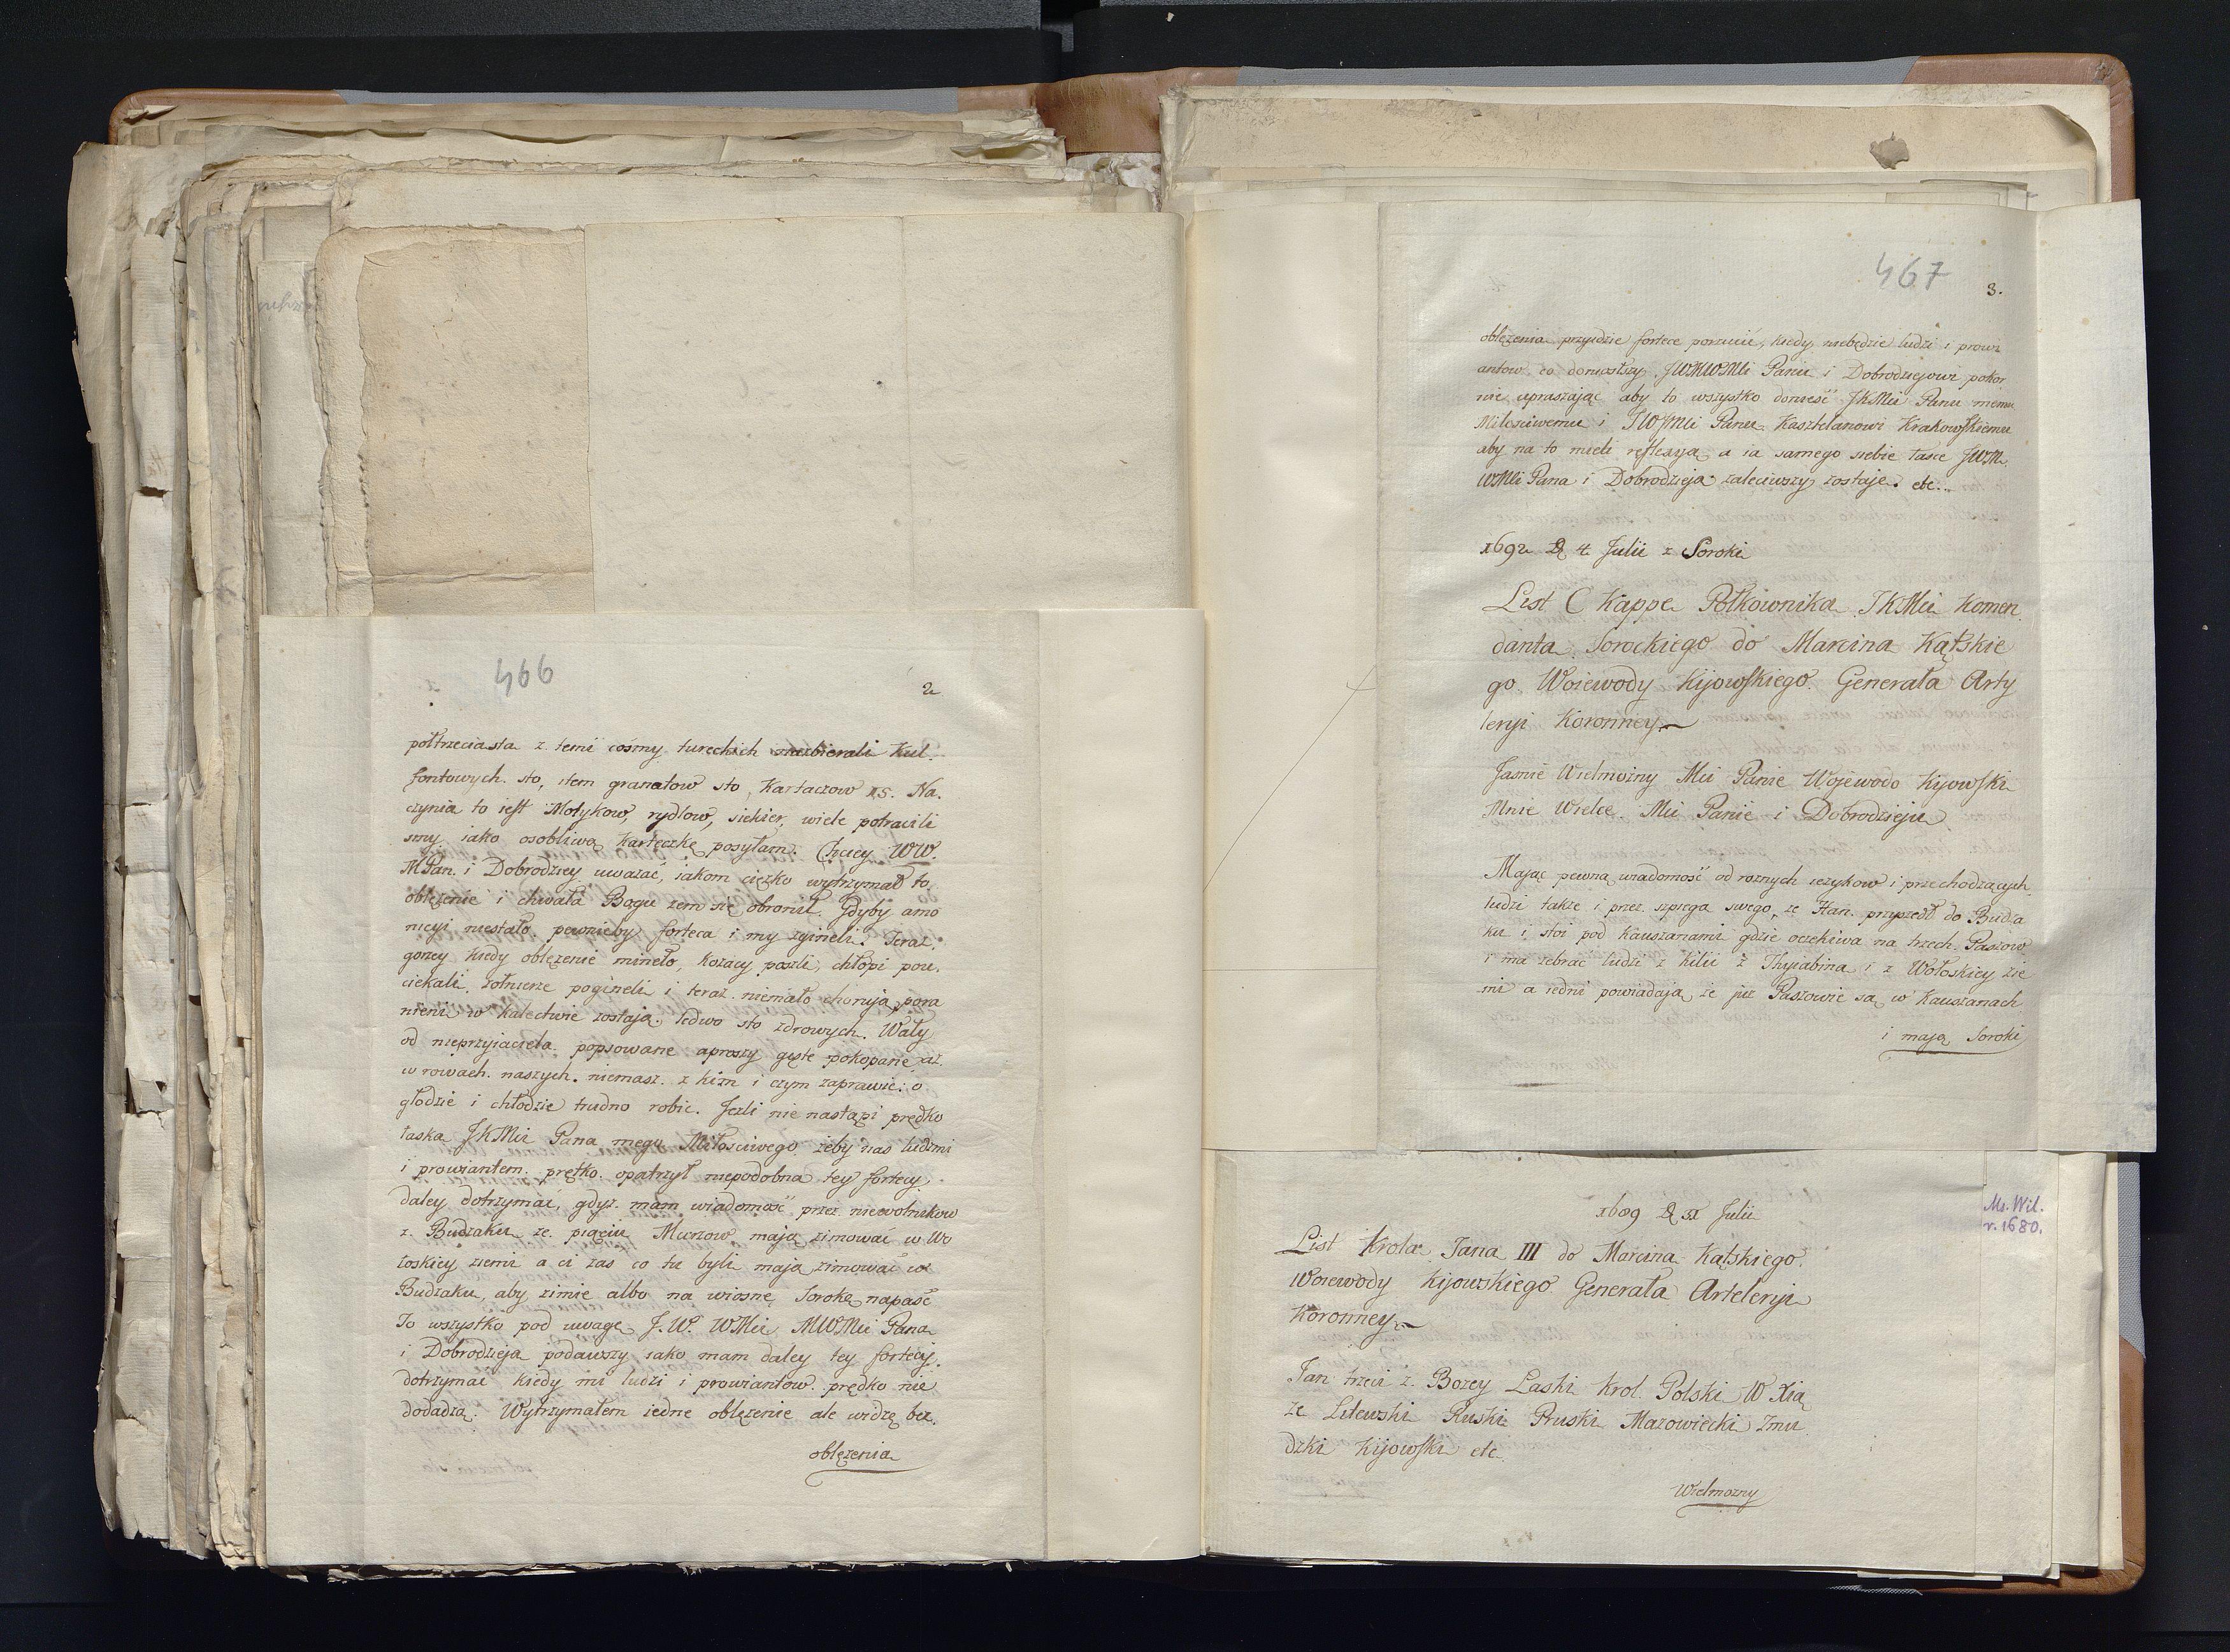 466
2
połtrzecia sta z temi cośmy tureckich nazbierali Kul.
fontowych. sto, item granatow sto, Kartaczow 15. Na.
czynia to iest Motykow, rydlow, siekier, wiele potracili
smy iako osobliwą karteczkę posyłam. Chciey WW.
MPan. i Dobrodziey uwazać, iakom cięzko wytrzymał to
oblęzenie i chwała Bogu zem się obronił. Gdyby amo
nicyi niestało, pewnieby forteca i my zgineli. Teraz.
gorzey kiedy oblęzenie mineło, kozacy poszli, chłopi pou.
ciekali. zołnierze pogineli i teraz niemało choruią, pora
nieni w kalectwie zostaią. ledwo sto zdrowych. Wały
od nieprzyiaciela. popsowane aproszy gęste pokopane az.
w rowach. naszych. niemasz. z kim i czym zaprawić: o
głodzie i chłodzie trudno robic. Jezli nie nastąpi prędko
łaska JKMci Pana mego Miłosciwego zeby nas ludzmi
i prowiantem. prętko. opatrzył niepodobna tey fortecy.
daley dotrzymać, gdyz. mam wiadomość przez niewolnikow
z. Budzaku ze. pięciu Murzow maią zimować w Wo
łoskiey ziemi a ci zas co tu byli maią zimować w
Budzaku, aby zimie albo na wiosnę Sorokę napaść
To wszystko pod uwagę J.W. WMci MWMci Pana
i Dobrodzieja podawszy iako mam daley tey fortecy.
dotrzymać kiedy mi ludzi i prowiantow prędko nie
dodadzą. Wytrzymałem iedne oblęzenie ale widzę bez.
oblęzenia
467
3.
oblęzenia przyidzie fortece porzucić, kiedy niebędzie ludzi i prowi
antow. co doniosłszy JWMWMci Panu i Dobrodziejowi pokor
nie upraszając aby to wszystko donieść JKMci Panu memu
Miłosciwemu i JWJMci Panu Kasztelanowi Krakowskiemu
aby na to mieli reflexyą a ia samego siebie łasce JWM
WMci Pana i Dobrodzieja zaleciwszy zostaję. etc..
1692 D 4 Julii z Soroki
List C Kappe Połkownika JKMci Komen
danta Sorockiego do Marcina Kątskie
go Woiewody Kijowskiego. Generała Arty
leryi Koronney
Jasnie Wielmozny Mci Panie Wojewodo Kijowski
Mnie Wielce. Mci Panie i Dobrodzieju
Mając pewną wiadomość od roznych iezykow i przechodzących
ludzi takze i przez szpiega swego, ze Han. przyszedł do Budza
ku i stoi pod Kauszanami gdzie oczekiwa na trzech. Paszow
i ma zebrać ludzi z Kilii z Thyiabina i z Wołoskiey zie
mi a iedni powiadaią ze juz Paszowie są w Kauszanach
i mają Soroki
1689 D 31 Julii
Ms. Wil.
r. 1680.
List Krola Jana III do Marcina Kątskiego.
Woiewody Kijowskiego Generała Arteleryi
Koronney
Jan trzeci z. Bozey Łaski Krol. Polski W Xią
ze Litewski Ruski Pruski Mazowiecki Zmu
dzki Kijowski etc
Wielmozny